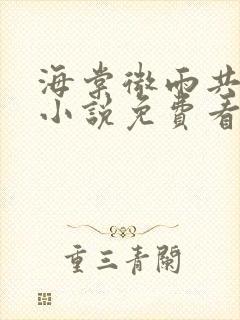 海棠微雨共
小說免費看
重三青闌